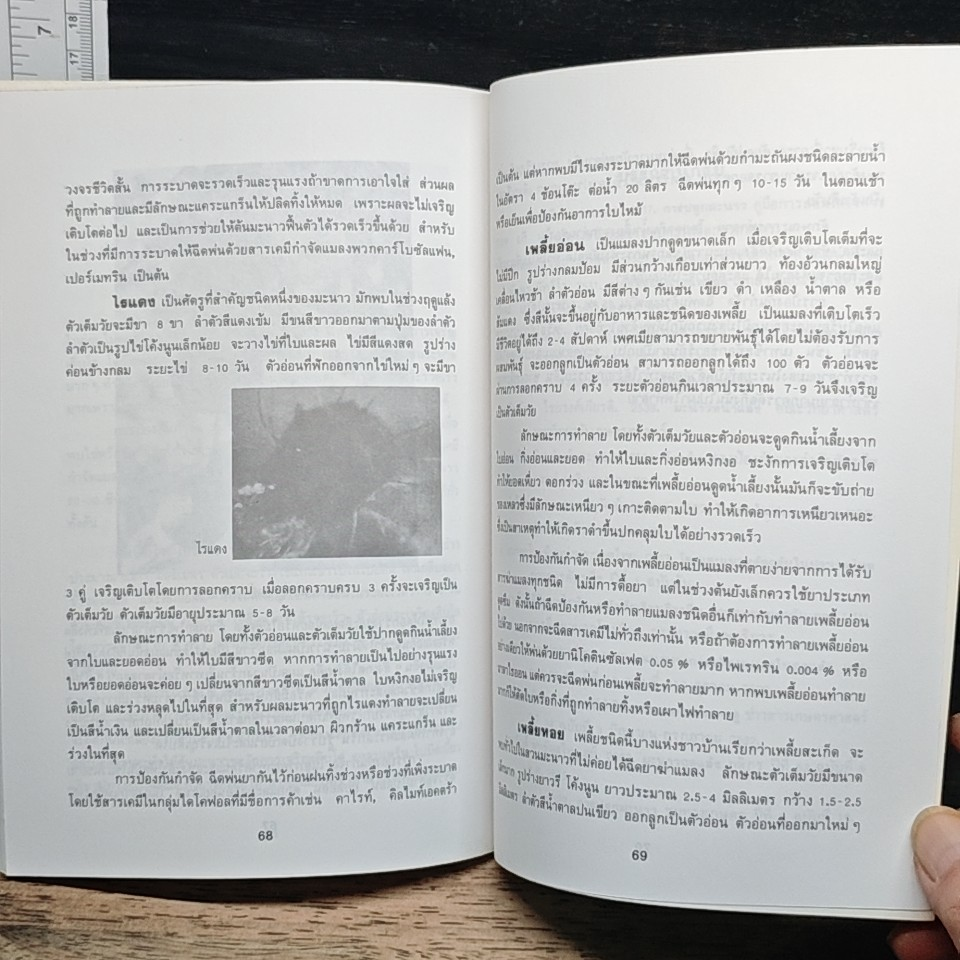 7
18
17
วงจรชีวิตสั้น การระบาดจะรวดเร็วและรุนแรงถ้าขาดการเอาใจใส่ ส่วนผล
ที่ถูกทำลายและมีลักษณะแคระแกร็นให้ปลิดทิ้งให้หมด เพราะผลจะไม่เจริญ
เติบโตต่อไป และเป็นการช่วยให้ต้นมะนาวฟื้นตัวได้รวดเร็วขึ้นด้วย สำหรับ
ในช่วงที่มีการระบาดให้ฉีดพ่นด้วยสารเคมีกำจัดแมลงพวกคาร์โบซัลแฟน,
เปอร์เมทริน เป็นต้น
ไรแดง เป็นศัตรูที่สำคัญชนิดหนึ่งของมะนาว มักพบในช่วงฤดูแล้ง
ตัวเต็มวัยจะมีขา 8 ขา ลำตัวสีแดงเข้ม มีขนสีขาวออกมาตามปุ่มของลำตัว
ลำตัวเป็นรูปไข่โค้งนูนเล็กน้อย จะวางไข่ที่ใบและผล ไข่มีสีแดงสด รูปร่าง
ค่อนข้างกลม ระยะไข่ 8-10 วัน ตัวอ่อนที่ฟักออกจากไข่ใหม่ๆ จะมีขา
ไรแดง
3 คู่ เจริญเติบโตโดยการลอกคราบ เมื่อลอกคราบครบ 3 ครั้งจะเจริญเป็น
ตัวเต็มวัย ตัวเต็มวัยมีอายุประมาณ 5-8 วัน
ลักษณะการทำลาย โดยทั้งตัวอ่อนและตัวเต็มวัยใช้ปากดูดกินน้ำเลี้ยง
จากใบและยอดอ่อน ทำให้ใบมีสีขาวซีด หากการทำลายเป็นไปอย่างรุนแรง
ใบหรือยอดอ่อนจะค่อยๆ เปลี่ยนจากสีขาวซีดเป็นสีน้ำตาล ใบหงิกงอไม่เจริญ
เติบโต และร่วงหลุดไปในที่สุด สำหรับผลมะนาวที่ถูกไรแดงทำลายจะเปลี่ยน
เป็นสีน้ำเงิน และเปลี่ยนเป็นสีน้ำตาลในเวลาต่อมา ผิวกร้าน แคระแกร็น และ
ร่วงในที่สุด
การป้องกันกำจัด ฉีดพ่นยากันไว้ก่อนฝนทิ้งช่วงหรือช่วงที่เพิ่งระบาด
โดยใช้สารเคมีในกลุ่มไดโคฟอลที่มีชื่อการค้าเช่น คาไรท์, คิลไมท์เอคตร้า
68
เป็นต้น แต่หากพบมีไรแดงระบาดมากให้ฉีดพ่นด้วยกำมะถันผงชนิดละลายน้ำ
ในอัตรา 4 ช้อนโต๊ะ ต่อน้ำ 20 ลิตร ฉีดพ่นทุกๆ 10-15 วัน ในตอนเช้า
หรือเย็นเพื่อป้องกันอาการใบไหม้
เพลี้ยอ่อน เป็นแมลงปากดูดขนาดเล็ก เมื่อเจริญเติบโตเต็มที่จะ
ไม่มีปีก รูปร่างกลมป้อม มีส่วนกว้างเกือบเท่าส่วนยาว ท้องอ้วนกลมใหญ่
เคลื่อนไหวช้า ลำตัวอ่อน มีสีต่างๆ กันเช่น เขียว ดำ เหลือง น้ำตาล หรือ
ส้มแดง ซึ่งสีนั้นจะขึ้นอยู่กับอาหารและชนิดของเพลี้ย เป็นแมลงที่เติบโตเร็ว
มีชีวิตอยู่ได้ 2-4 สัปดาห์ เพศเมียสามารถขยายพันธุ์ได้โดยไม่ต้องรับการ
ผสมพันธุ์ จะออกลูกเป็นตัวอ่อน สามารถออกลูกได้ถึง 100 ตัว ตัวอ่อนจะ
ผ่านการลอกคราบ 4 ครั้ง ระยะตัวอ่อนกินเวลาประมาณ 7-9 วันจึงเจริญ
เป็นตัวเต็มวัย
ลักษณะการทำลาย โดยทั้งตัวเต็มวัยและตัวอ่อนจะดูดกินน้ำเลี้ยงจาก
ใบอ่อน กิ่งอ่อนและยอด ทำให้ใบและกิ่งอ่อนหงิกงอ ชะงักการเจริญเติบโต
ทำให้ยอดเหี่ยว ดอกร่วง และในขณะที่เพลี้ยอ่อนดูดน้ำเลี้ยงนั้นมันก็จะขับถ่าย
ของเหลวซึ่งมีลักษณะเหนียวๆ เกาะติดตามใบ ทำให้เกิดอาการเหนียวเหนอะ
ซึ่งเป็นสาเหตุทำให้เกิดราดำขึ้นปกคลุมใบได้อย่างรวดเร็ว
การป้องกันกำจัด เนื่องจากเพลี้ยอ่อนเป็นแมลงที่ตายง่ายจากการได้รับ
การฆ่าแมลงทุกชนิด ไม่มีการดื้อยา แต่ในช่วงต้นยังเล็กควรใช้ยาประเภท
ดูดซึม ดังนั้นถ้าฉีดป้องกันหรือทำลายแมลงชนิดอื่นก็เท่ากับทำลายเพลี้ยอ่อน
ไปด้วย นอกจากจะฉีดสารเคมีไม่ทั่วถึงเท่านั้น หรือถ้าต้องการทำลายเพลี้ยอ่อน
อย่างเดียวให้พ่นด้วยยานิโคตินซัลเฟต 0.05 % หรือไพเรทริน 0.004 % หรือ
มาลาไธออน แต่ควรจะฉีดพ่นก่อนเพลี้ยจะทำลายมาก หากพบเพลี้ยอ่อนทำลาย
มากก็ให้ตัดใบหรือกิ่งที่ถูกทำลายทิ้งหรือเผาไฟทำลาย
เพลี้ยหอย เพลี้ยชนิดนี้บางแห่งชาวบ้านเรียกว่าเพลี้ยสะเก็ด จะ
พบทั่วไปในสวนมะนาวที่ไม่ค่อยได้ฉีดยาฆ่าแมลง ลักษณะตัวเต็มวัยมีขนาด
เล็กมาก รูปร่างยาวรี โค้งนูน ยาวประมาณ 2.5-4 มิลลิเมตร กว้าง 1.5-2.5
มิลลิเมตร ลำตัวสีน้ำตาลปนเขียว ออกลูกเป็นตัวอ่อน ตัวอ่อนที่ออกมาใหม่ๆ
69